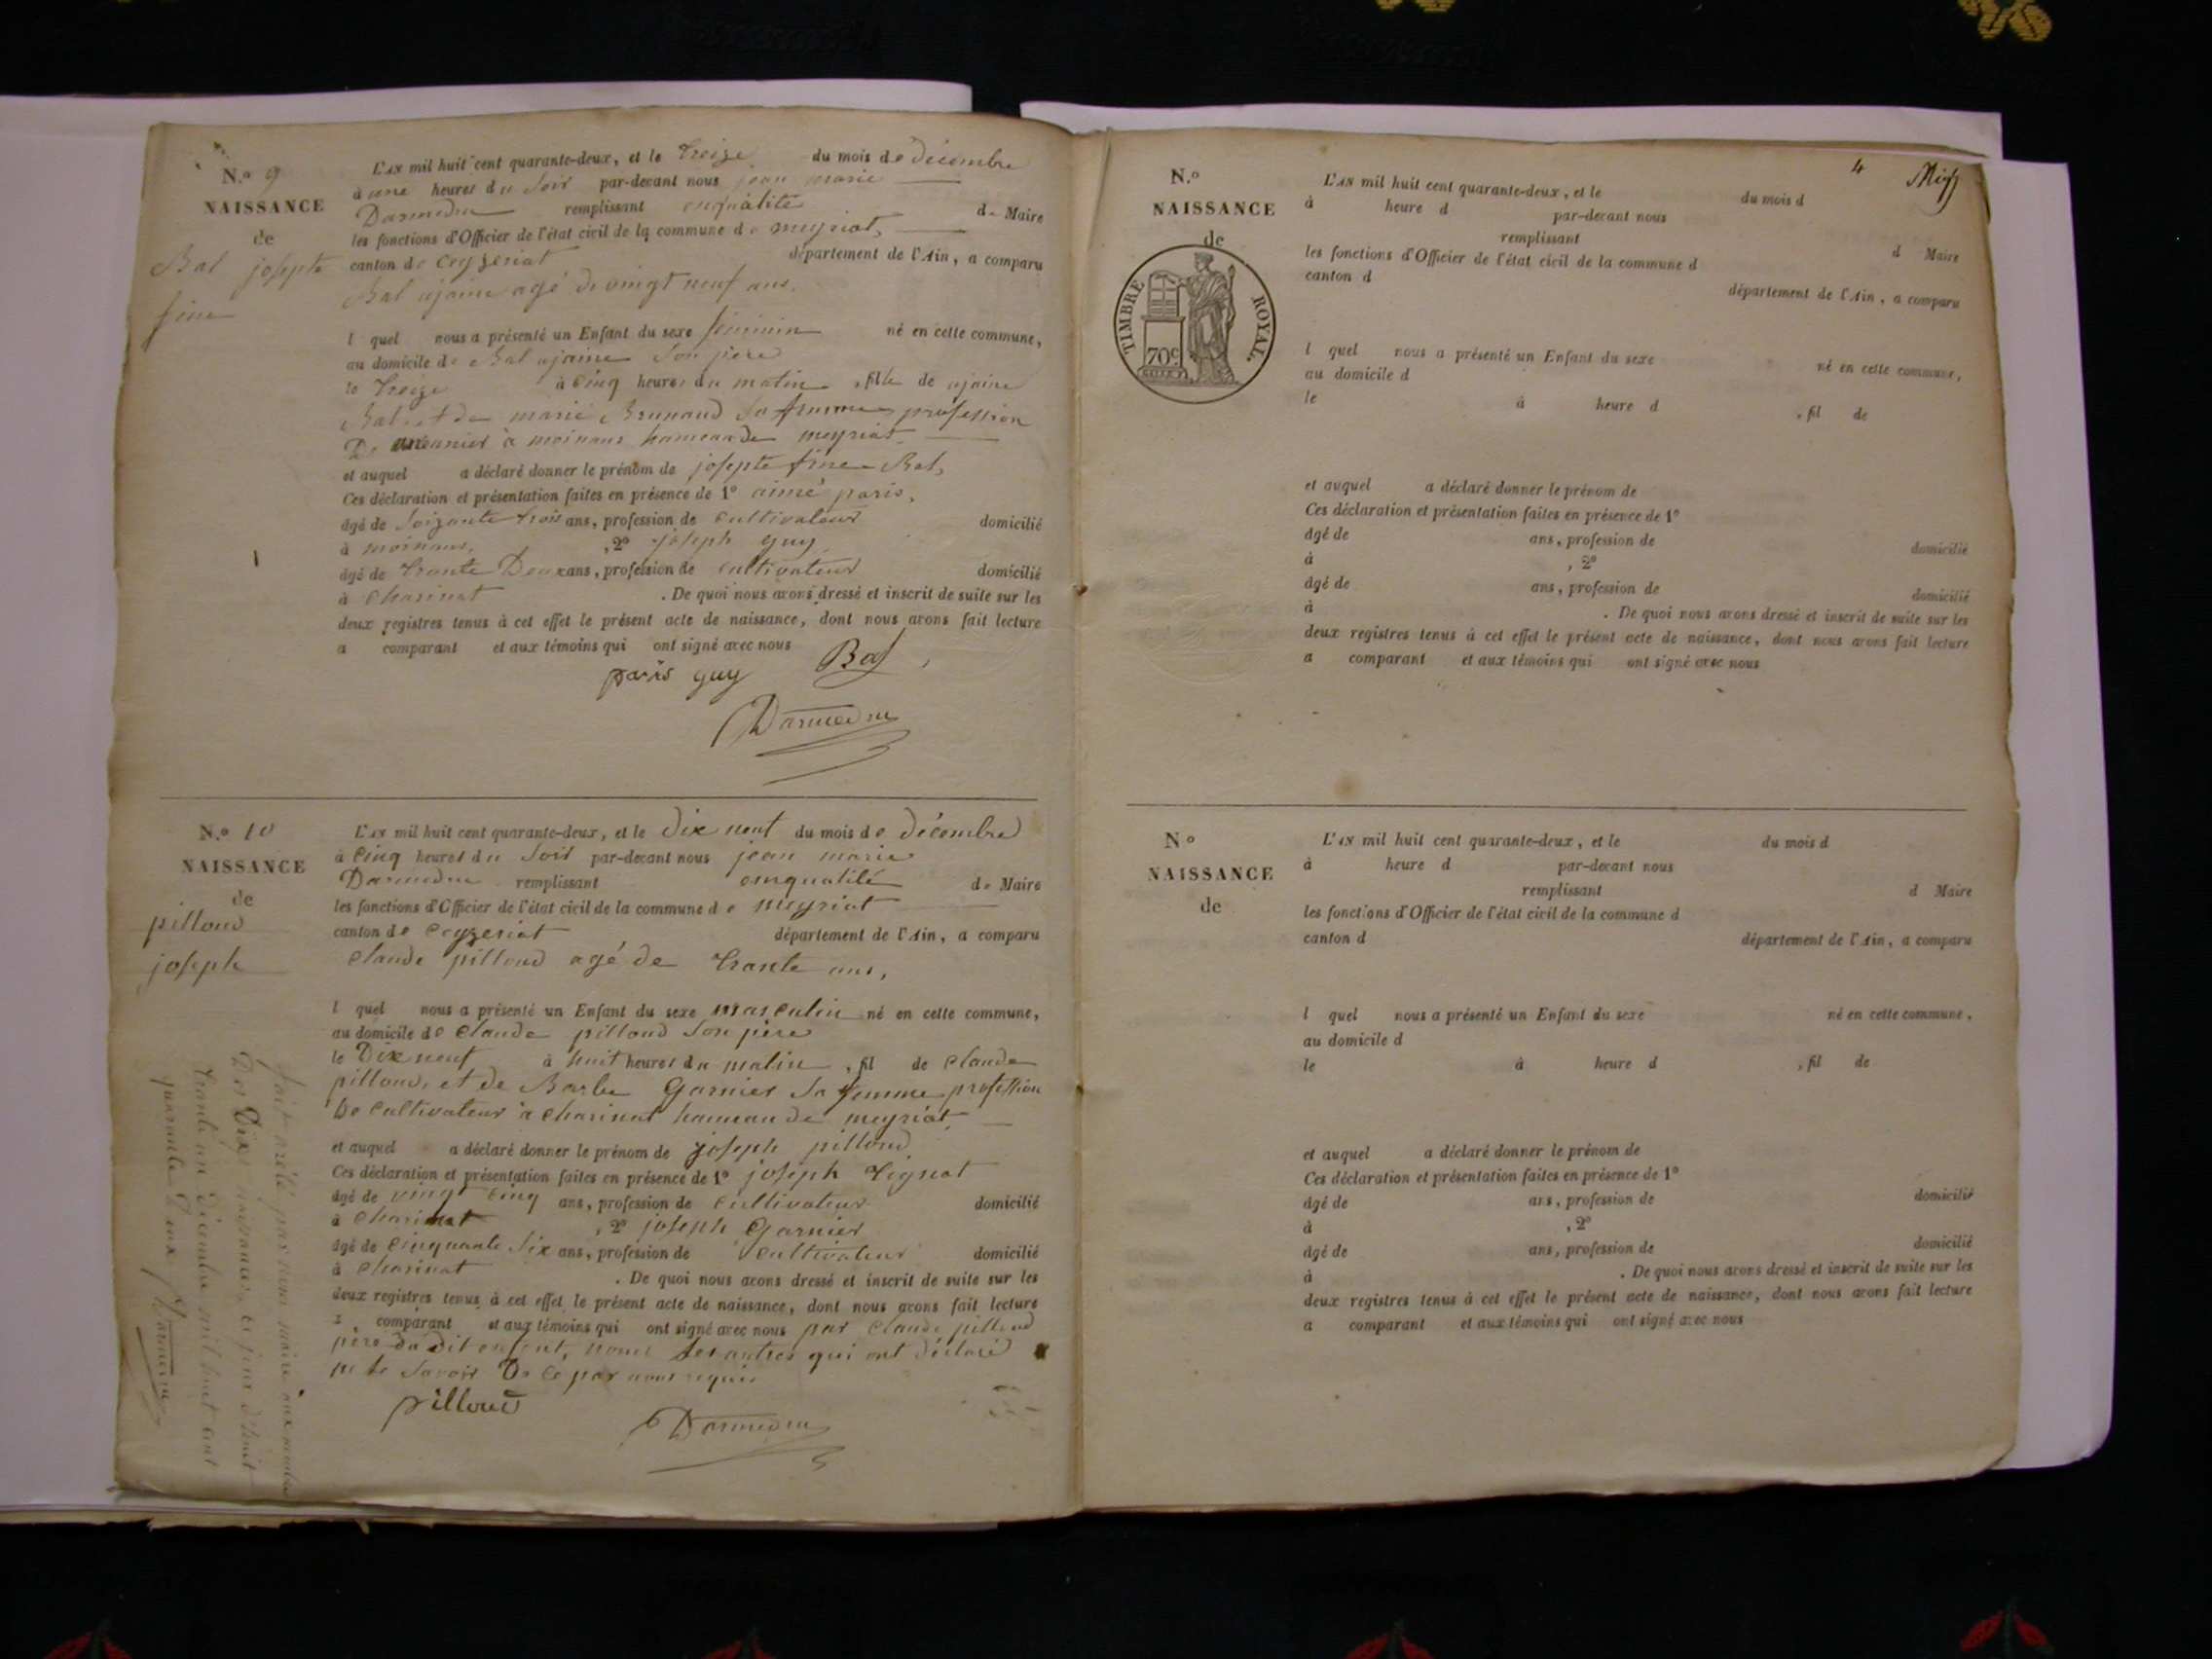 N.o 9
NAISSANCE
de
Bal josepte
fine
L'AN mil huit cent quarante-deux, et le treize du mois de décembre
à une heures du soir par-devant nous jean marie
Darmedru remplissant enqualité de Maire
les fonctions d'Officier de l'état civil de la commune de meyriat,
canton de Ceyzeriat département de l'Ain, a comparu
Bal ajaine agé de vingt neuf ans.
l quel nous a présenté un Enfant du sexe féminin né en cette commune,
au domicile de Bal ajaine son père
le treize à cinq heures du matin, fille de ajaine
Bal et de marie Brunaud sa femme profession
De meunier à moinans hameau de meyriat
et auquel a déclaré donner le prénom de josepte fine Bal,
Ces déclaration et présentation faites en présence de 1º aimé paris,
âgé de soizante trois ans, profession de cultivateur domicilié
à moinans, , 2º joseph guy
âgé de trante Deux ans, profession de cultivateur domicilié
à Charinat . De quoi nous avons dressé et inscrit de suite sur les
deux registres tenus à cet effet le présent acte de naissance, dont nous avons fait lecture
a comparant et aux témoins qui ont signé avec nous
Bal
paris guy
Darmedru
N.o 10
NAISSANCE
de
pilloud
joseph
L'AN mil huit cent quarante-deux, et le dix neuf du mois de décembre
à cinq heures du soir par-devant nous jean marie
Darmedru remplissant enqualité de Maire
les fonctions d'Officier de l'état civil de la commune de meyriat
canton de Ceyzeriat département de l'Ain, a comparu
claude pilloud agé de trante ans,
l quel nous a présenté un Enfant du sexe masculin né en cette commune,
au domicile de claude pilloud son père
le Dix neuf à huit heures du matin, fil de claude
pilloud, et de Barbe Garnier sa femme profession
De cultivateur à charinat hameau de meyriat,
et auquel a déclaré donner le prénom de joseph pilloud
Ces déclaration et présentation faites en présence de 1º joseph Tignat
âgé de vingt cinq ans, profession de cultivateur domicilié
à Charinat , 2º joseph Garnier
âgé de cinquante six ans, profession de cultivateur domicilié
à Charinat . De quoi nous avons dressé et inscrit de suite sur les
deux registres tenus à cet effet le présent acte de naissance, dont nous avons fait lecture
a comparant et aux témoins qui ont signé avec nous par claude pilloud
père du dit enfant, nom les autres qui ont déclaré
ne le savoir De ce par nous requis
pilloud
Darmedru
fait arêté par nous maire aux nombre
Des Dix naissances ce jour d'huit
trante un décembre mil huit cent
quarante Deux Darmedru
4
N.o
NAISSANCE
de
TIMBRE ROYAL.
70c
L'AN mil huit cent quarante-deux, et le du mois d
à heure d par-devant nous
remplissant d Maire
les fonctions d'Officier de l'état civil de la commune d
canton d département de l'Ain, a comparu
l quel nous a présenté un Enfant du sexe né en cette commune,
au domicile d
le à heure d , fil de
et auquel a déclaré donner le prénom de
Ces déclaration et présentation faites en présence de 1º
âgé de ans, profession de domicilié
à , 2º
âgé de ans, profession de domicilié
à . De quoi nous avons dressé et inscrit de suite sur les
deux registres tenus à cet effet le présent acte de naissance, dont nous avons fait lecture
a comparant et aux témoins qui ont signé avec nous
N.o
NAISSANCE
de
L'AN mil huit cent quarante-deux, et le du mois d
à heure d par-devant nous
remplissant d Maire
les fonctions d'Officier de l'état civil de la commune d
canton d département de l'Ain, a comparu
l quel nous a présenté un Enfant du sexe né en cette commune,
au domicile d
le à heure d , fil de
et auquel a déclaré donner le prénom de
Ces déclaration et présentation faites en présence de 1º
âgé de ans, profession de domicilié
à , 2º
âgé de ans, profession de domicilié
à . De quoi nous avons dressé et inscrit de suite sur les
deux registres tenus à cet effet le présent acte de naissance, dont nous avons fait lecture
a comparant et aux témoins qui ont signé avec nous